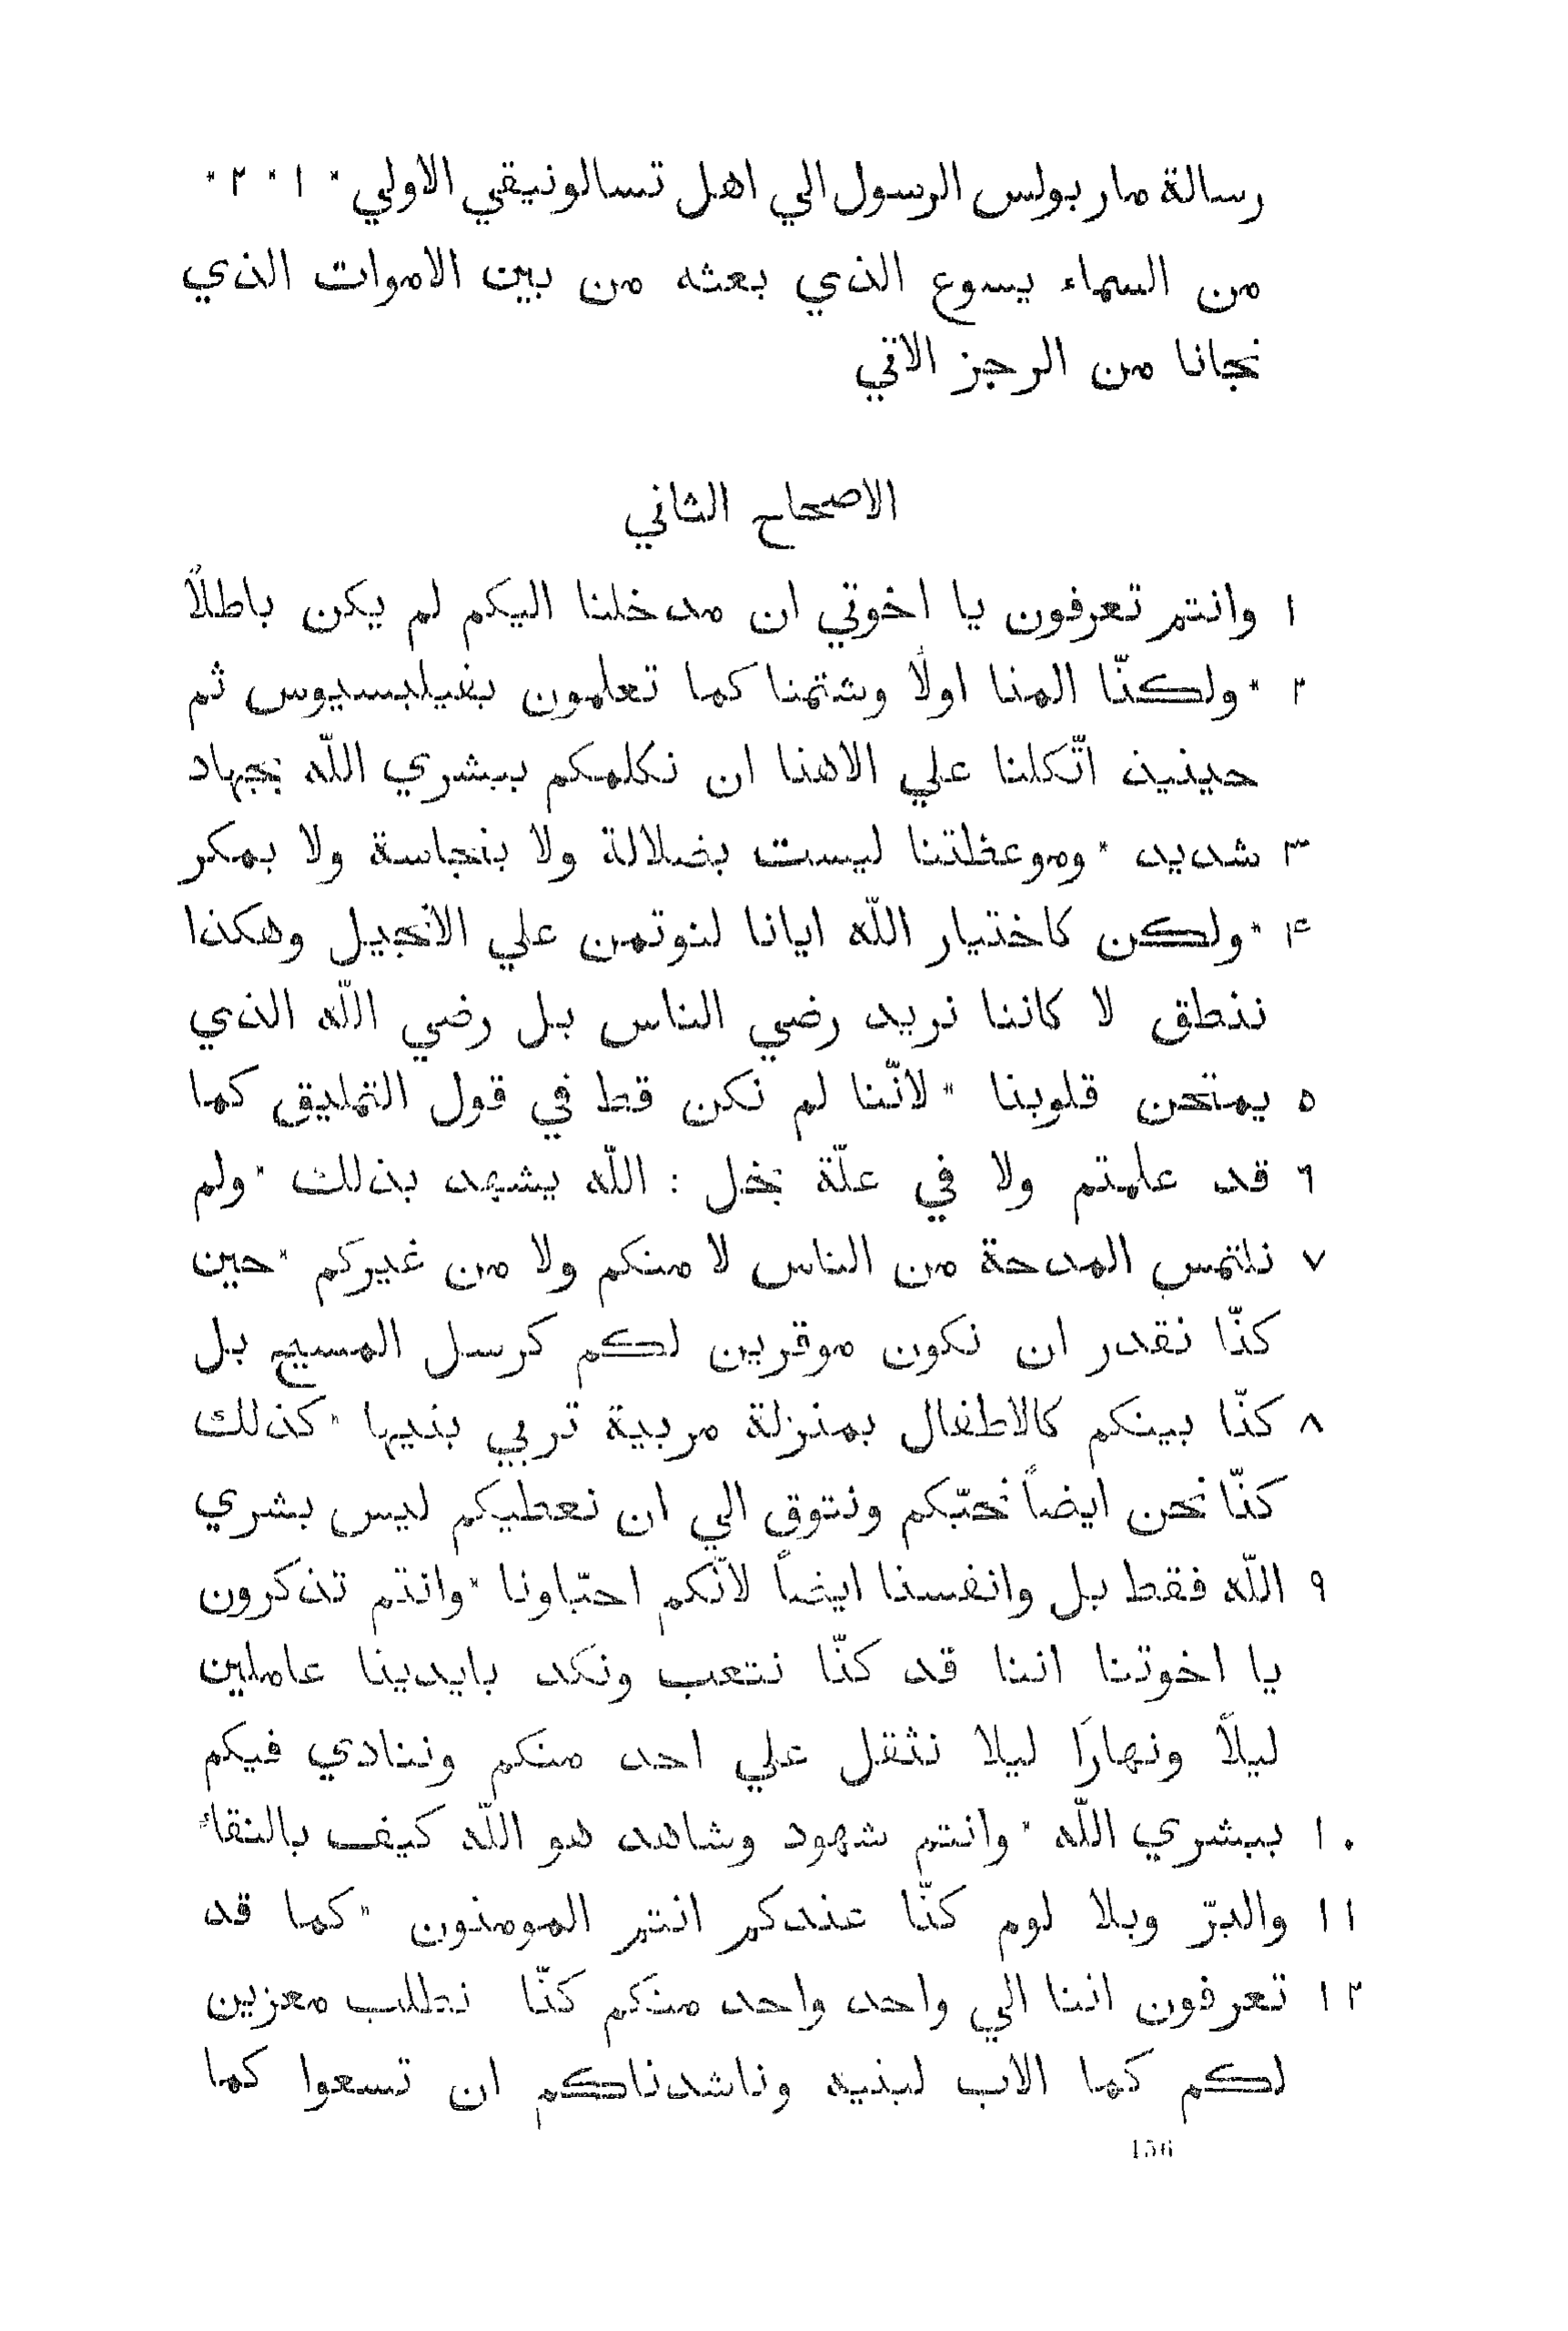 رسالة مار بولس الرسول الي اهل تسالونيقي الاولي * ١ * ٢ *
من السماء يسوع الذي بعثه من بين الاموات الذي
نجانا من الرجز الاتي
الاصحاح الثاني
١ وانتم تعرفون يا اخوتي ان مدخلنا اليكم لم يكن باطلاً
٢ * ولكنّا المنا اولاً وشتمنا كما تعلمون بفيلبسيوس ثم
حينيذ اتّكلنا علي الاهنا ان نكلمكم ببشري اللّه بجهاد
٣ شديد * وموعظتنا ليست بضلالة ولا بنجاسة ولا بمكر
۴ * ولكن كاختيار اللّه ايانا لنوتمن علي الانجيل وهكذا
ننطق لا كاننا نريد رضي الناس بل رضي اللّه الذي
٥ يمتحن قلوبنا * لانّنا لم نكن قط في قول التمليق كما
٦ قد علمتم ولا في علّة بخل : اللّه يشهد بذلك * ولم
٧ نلتمس المدحة من الناس لا منكم ولا من غيركم * حين
كنّا نقدر ان نكون موقرين لكم كرسل المسيح بل
٨ كنّا بينكم كالاطفال بمنزلة مربية تربي بنيها * كذلك
كنّا نحن ايضاً نحبّكم ونتوق الي ان نعطيكم ليس بشري
٩ اللّه فقط بل وانفسنا ايضاً لانّكم احبّاونا * وانتم تذكرون
يا اخوتنا اننا قد كنّا نتعب ونكد بايدينا عاملين
ليلاً ونهارًا ليلا نثقل علي احد منكم وننادي فيكم
١٠ ببشري اللّه * وانتم شهود وشاهد هو اللّه كيف بالنقاء
١١ والبرّ وبلا لوم كنّا عندكم انتم المومنون * كما قد
١٢ تعرفون اننا الي واحد واحد منكم كنّا نطلب معزين
لكم كما الاب لبنيه وناشدناكم ان تسعوا كما
156